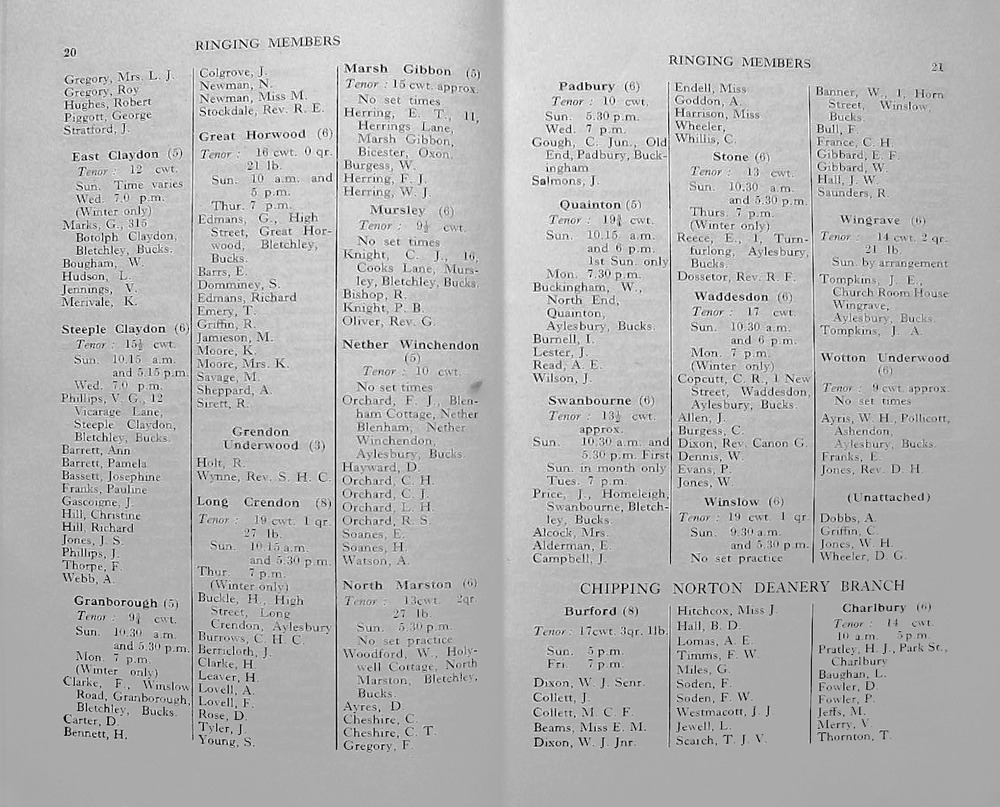 20
RINGING MEMBERS
Gregory, Mrs. L. J.
Gregory, Roy
Hughes, Robert
Piggott, George
Stratford, J.
East Claydon (5)
Tenor : 12 cwt.
Sun. Time varies
Wed. 7.0 p.m.
(Winter only)
Marks, G., 315
Botolph Claydon,
Bletchley, Bucks.
Bougham, W.
Hudson, L.
Jennings, V.
Merivale, K.
Steeple Claydon (6)
Tenor : 15½ cwt.
Sun. 10.15 a.m.
and 5.15 p.m.
Wed. 7.0 p.m.
Phillips, V. G., 12
Vicarage Lane,
Steeple Claydon,
Bletchley, Bucks.
Barrett, Ann
Barrett, Pamela
Bassett, Josephine
Franks, Pauline
Gascoigne, J.
Hill, Christine
Hill, Richard
Jones, J. S.
Phillips, J.
Thorpe, F.
Webb, A.
Granborough (5)
Tenor : 9¼ cwt.
Sun. 10.30 a.m.
and 5.30 p.m.
Mon. 7 p.m.
(Winter only)
Clarke, F., Winslow
Road, Granborough,
Bletchley, Bucks.
Carter, D.
Bennett, H.
Colgrove, J.
Newman, N.
Newman, Miss M.
Stockdale, Rev. R. E.
Great Horwood (6)
Tenor : 16 cwt. 0 qr.
21 lb.
Sun. 10 a.m. and
5 p.m.
Thur. 7 p.m.
Edmans, G., High
Street, Great Hor-
wood, Bletchley,
Bucks.
Barrs, E.
Domminey, S.
Edmans, Richard
Emery, T.
Griffin, R.
Jamieson, M.
Moore, K.
Moore, Mrs. K.
Savage, M.
Sheppard, A.
Sirett, R.
Grendon
Underwood (3)
Holt, R.
Wynne, Rev. S. H. C.
Long Crendon (8)
Tenor : 19 cwt. 1 qr.
27 lb.
Sun. 10.15 a.m.
and 5.30 p.m.
Thur. 7 p.m.
(Winter only)
Buckle, H., High
Street, Long
Crendon, Aylesbury
Burrows, C. H. C.
Berricloth, J.
Clarke, H.
Leaver, H.
Lovell, A.
Lovell, F.
Rose, D.
Tyler, J.
Young, S.
Marsh Gibbon (5)
Tenor : 15 cwt. approx.
No set times
Herring, E. T., 11,
Herrings Lane,
Marsh Gibbon,
Bicester, Oxon.
Burgess, W.
Herring, F. J.
Herring, W. J.
Mursley (6)
Tenor : 9½ cwt.
No set times
Knight, C. J., 16,
Cooks Lane, Murs-
ley, Bletchley, Bucks.
Bishop, R.
Knight, P. B.
Oliver, Rev. G.
Nether Winchendon
(5)
Tenor : 10 cwt.
No set times
Orchard, F. J., Blen-
ham Cottage, Nether
Blenham, Nether
Winchendon,
Aylesbury, Bucks.
Hayward, D.
Orchard, C. H.
Orchard, C. J.
Orchard, L. H.
Orchard, R. S.
Soanes, E.
Soanes, H.
Watson, A.
North Marston (6)
Tenor : 13cwt. 2qr.
27 lb.
Sun. 5.30 p.m.
No set practice
Woodford, W., Holy-
well Cottage, North
Marston, Bletchley,
Bucks.
Ayres, D.
Cheshire, C.
Cheshire, C. T.
Gregory, F.
RINGING MEMBERS
21
Padbury (6)
Tenor : 10 cwt.
Sun. 5.30 p.m.
Wed. 7 p.m.
Gough, C. Jun., Old
End, Padbury, Buck-
ingham
Salmons, J.
Quainton (5)
Tenor : 19¾ cwt.
Sun. 10.15 a.m.
and 6 p.m.
1st Sun. only
Mon. 7.30 p.m.
Buckingham, W.,
North End,
Quainton,
Aylesbury, Bucks.
Burnell, I.
Lester, J.
Read, A. E.
Wilson, J.
Swanbourne (6)
Tenor : 13½ cwt.
approx.
Sun. 10.30 a.m. and
5.30 p.m. First
Sun. in month only
Tues. 7 p.m.
Price, J., Homeleigh,
Swanbourne, Bletch-
ley, Bucks.
Alcock, Mrs.
Alderman, E.
Campbell, J.
Endell, Miss
Goddon, A.
Harrison, Miss
Wheeler,
Whillis, C.
Stone (6)
Tenor : 13 cwt.
Sun. 10.30 a.m.
and 5.30 p.m.
Thurs. 7 p.m.
(Winter only)
Reece, E., 1, Turn-
furlong, Aylesbury,
Bucks.
Dossetor, Rev. R. F.
Waddesdon (6)
Tenor : 17 cwt.
Sun. 10.30 a.m.
and 6 p.m.
Mon. 7 p.m.
(Winter only)
Copcutt, C. R., 1 New
Street, Waddesdon,
Aylesbury, Bucks.
Allen, J.
Burgess, C.
Dixon, Rev. Canon G.
Dennis, W.
Evans, P.
Jones, W.
Winslow (6)
Tenor : 19 cwt. 1 qr.
Sun. 9.30 a.m.
and 5.30 p.m.
No set practice
Banner, W., 1, Horn
Street, Winslow,
Bucks.
Bull, F.
France, C. H.
Gibbard, E. F.
Gibbard, W.
Hall, J. W.
Saunders, R.
Wingrave (6)
Tenor : 14 cwt. 2 qr.
21 lb.
Sun. by arrangement
Tompkins, J. E.,
Church Room House
Wingrave,
Aylesbury, Bucks.
Tompkins, J. A.
Wotton Underwood
(6)
Tenor : 9 cwt. approx.
No set times
Ayris, W. H., Pollicott,
Ashendon,
Aylesbury, Bucks.
Franks, E.
Jones, Rev. D. H.
(Unattached)
Dobbs, A.
Griffin, C.
Jones, W. H.
Wheeler, D. G.
CHIPPING NORTON DEANERY BRANCH
Burford (8)
Tenor : 17cwt. 3qr. 1lb.
Sun. 5 p.m.
Fri. 7 p.m.
Dixon, W. J. Senr.
Collett, J.
Collett, M. C. F.
Beams, Miss E. M.
Dixon, W. J. Jnr.
Hitchcox, Miss J.
Hall, B. D.
Lomas, A. E.
Timms, F. W.
Miles, G.
Soden, F.
Soden, F. W.
Westmacott, J. J.
Jewell, L.
Search, T. J. V.
Charlbury (6)
Tenor : 14 cwt.
10 a.m. 5 p.m.
Pratley, H. J., Park St.,
Charlbury
Baughan, L.
Fowler, D.
Fowler, P.
Jeffs, M.
Merry, V.
Thornton, T.